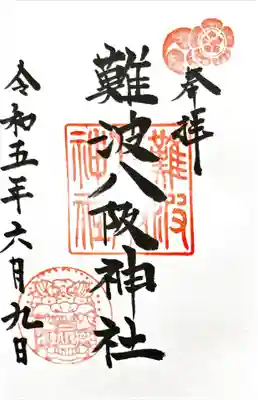 奉拝
難波八阪神社
難波
神社
令和五年六月九日